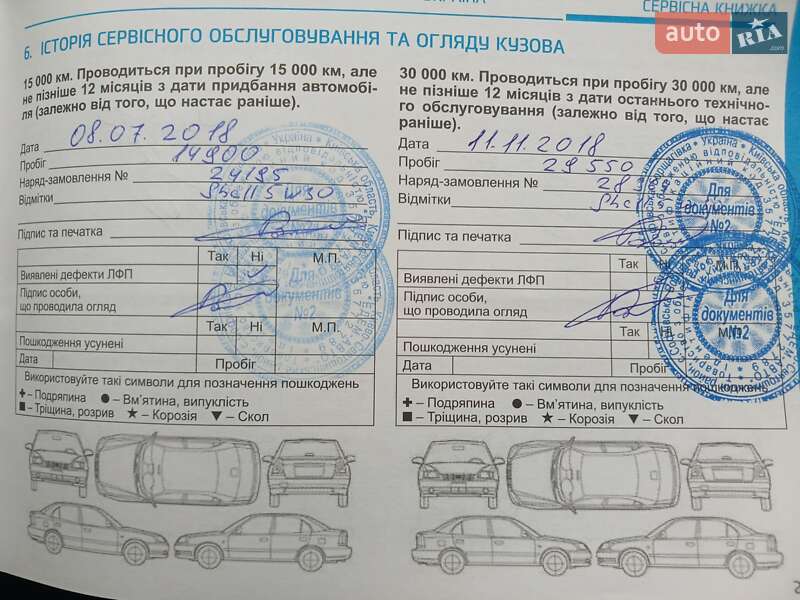 СЕРВІСНА КНИЖКА
auto RIA .com
6. ІСТОРІЯ СЕРВІСНОГО ОБСЛУГОВУВАННЯ ТА ОГЛЯДУ КУЗОВА
15 000 км. Проводиться при пробігу 15 000 км, але
не пізніше 12 місяців з дати придбання автомобі-
ля (залежно від того, що настає раніше).
Дата 08.07.2018
Пробіг 14900
Наряд-замовлення № 24195
Відмітки
Підпис та печатка
Так Ні М.П.
Виявлені дефекти ЛФП
Підпис особи,
що проводила огляд
Так Ні М.П.
Пошкодження усунені
Дата Пробіг
Використовуйте такі символи для позначення пошкоджень
– Подряпина – Вм'ятина, випуклість
– Тріщина, розрив – Корозія – Скол
Для
документів
№2
30 000 км. Проводиться при пробігу 30 000 км, але
не пізніше 12 місяців з дати останнього технічно-
го обслуговування (залежно від того, що настає
раніше).
Дата 11.11.2018
Пробіг 29550
Наряд-замовлення №
Відмітки
Підпис та печатка
Так Ні М.П.
Виявлені дефекти ЛФП
Підпис особи,
що проводила огляд
Так Ні М.П.
Пошкодження усунені
Дата Пробіг
Використовуйте такі символи для позначення пошкоджень
– Подряпина – Вм'ятина, випуклість
– Тріщина, розрив – Корозія – Скол
Для
документів
№2
Для
документів
№2